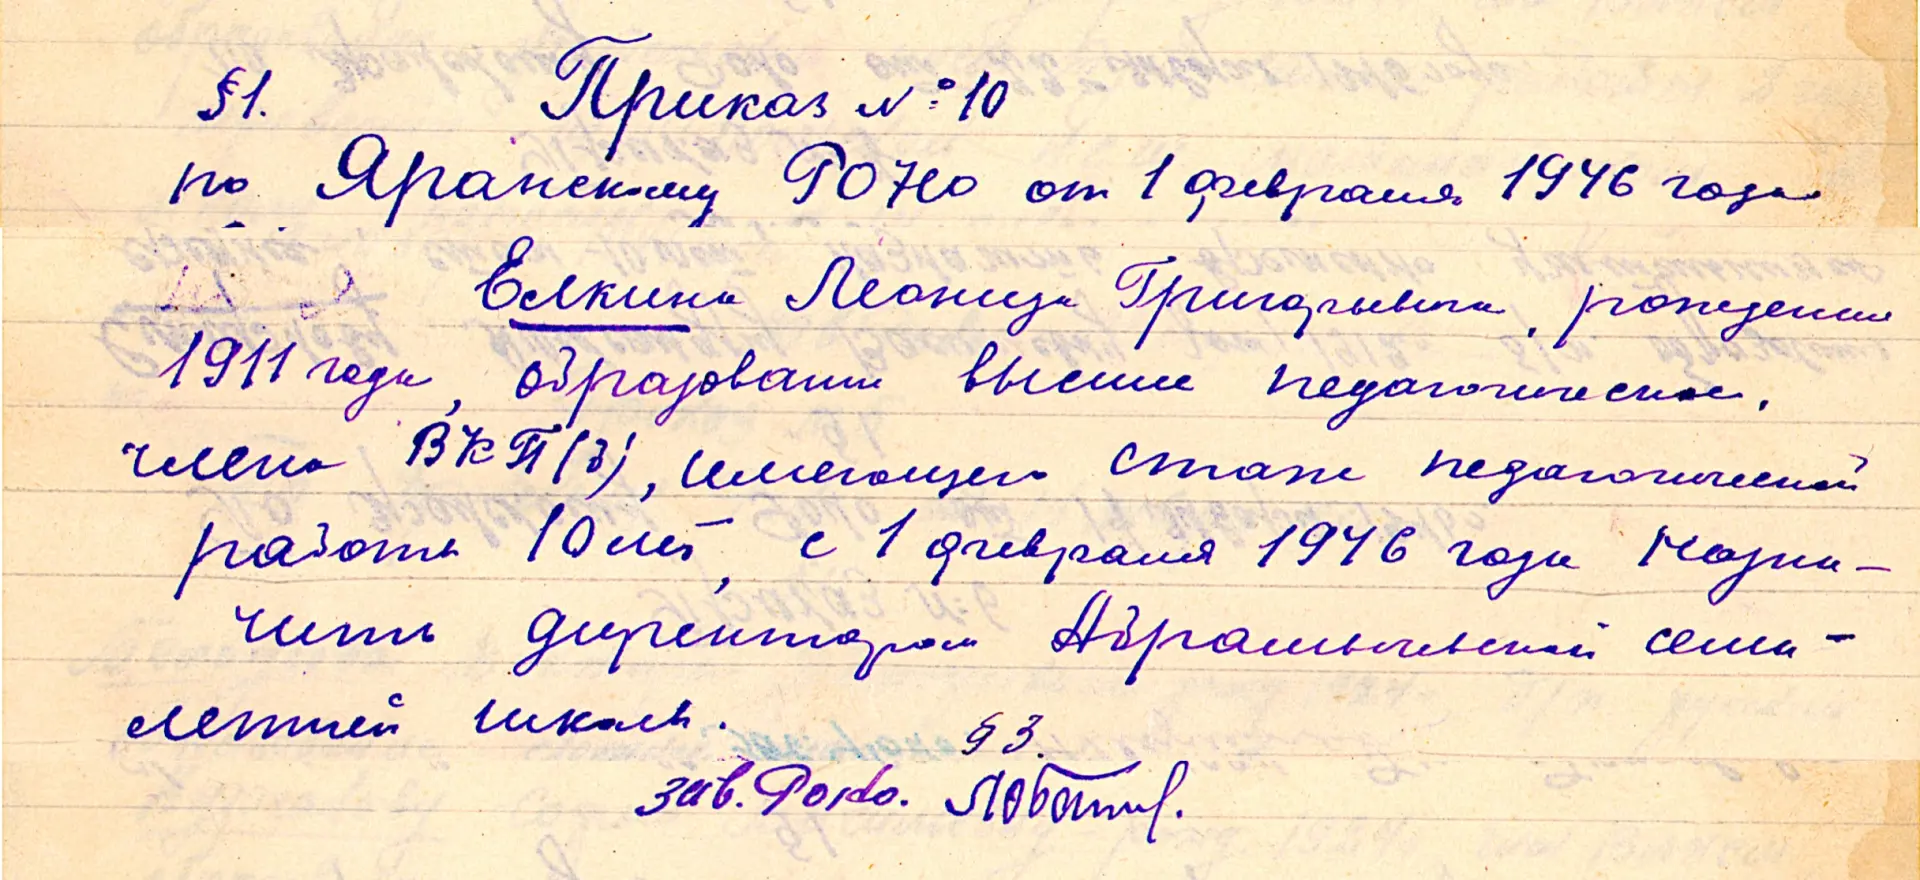 §1. Приказ №10
по Яранскому РОНО от 1 февраля 1946 года
Елкина Леонида Григорьевича, рождения
1911 года, образование высшее педагогическое,
члена ВКП(б), имеющего стаж педагогической
работы 10 лет, с 1 февраля 1946 года назна-
чить директором Абрамычевской семи-
летней школы.
§3.
зав. Роно. Лобатин.